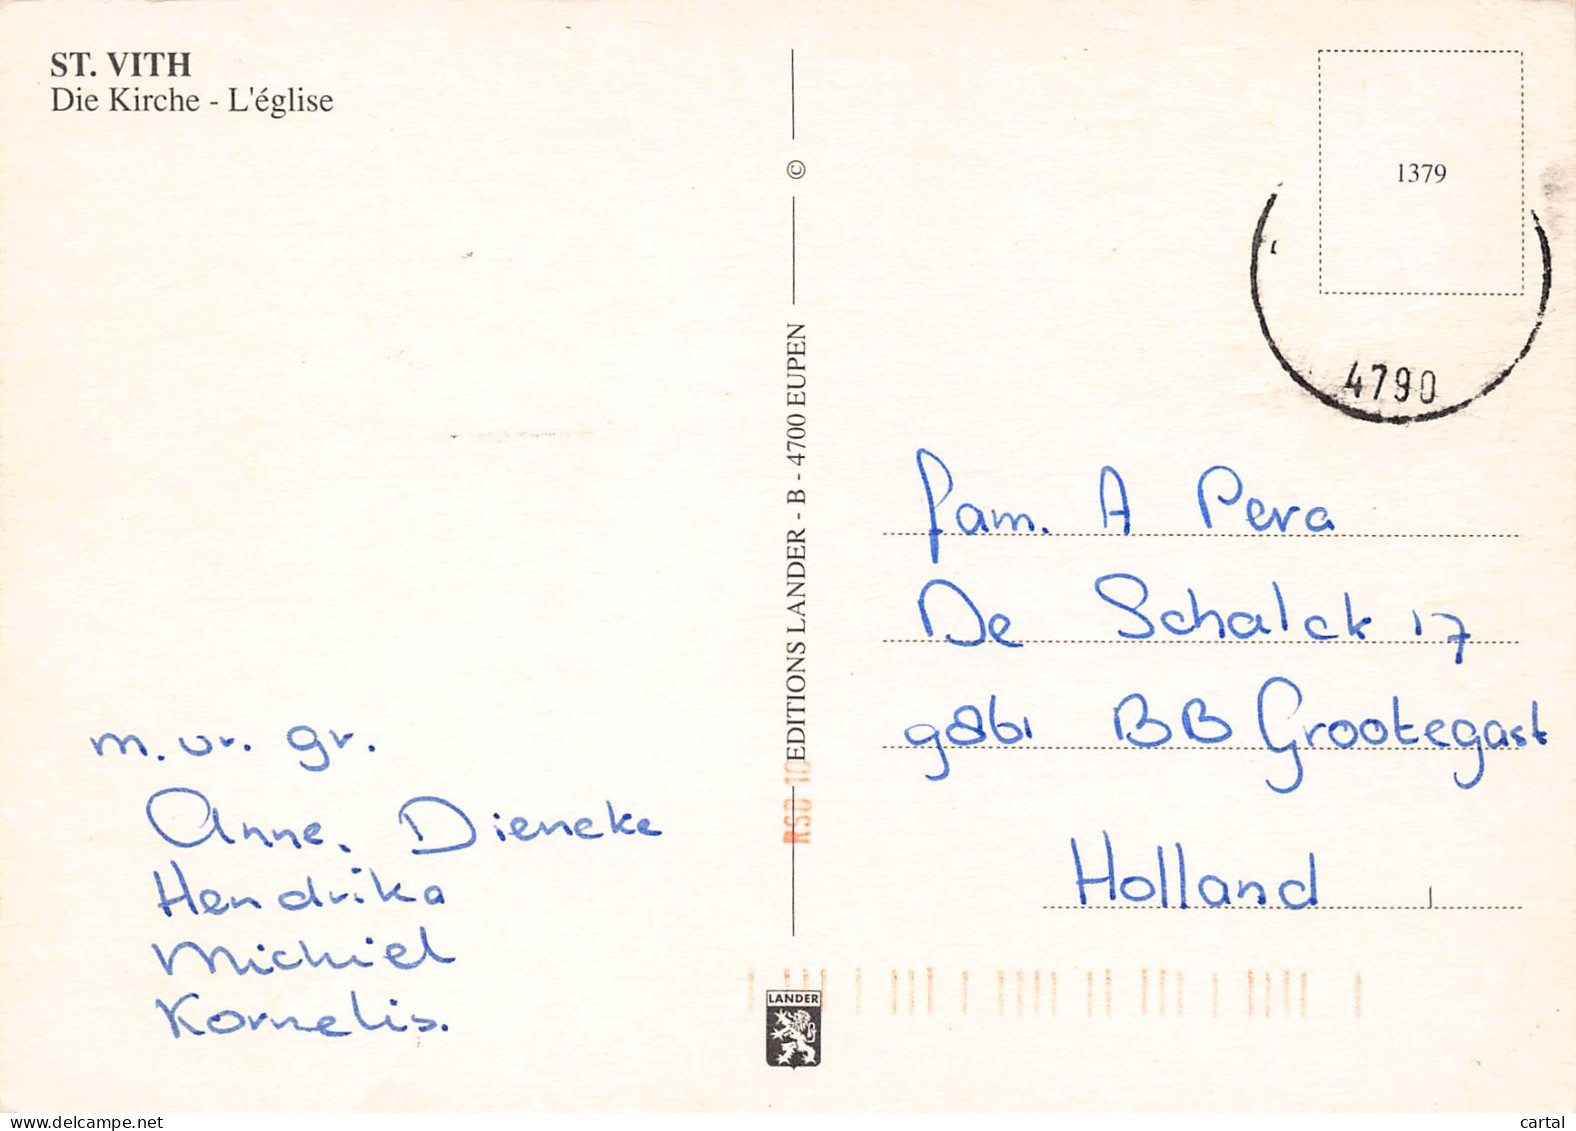 ST. VITH
Die Kirche - L'église
m. vr. gr.
Anne, Dieneke
Hendrika
Michiel
Kornelis.
©
EDITIONS LANDER - B - 4700 EUPEN
RSD 10
LANDER
1379
4790
fam. A Pera
De Schalck 17
9861 BB Grootegast
Holland
www.delcampe.net
cartal